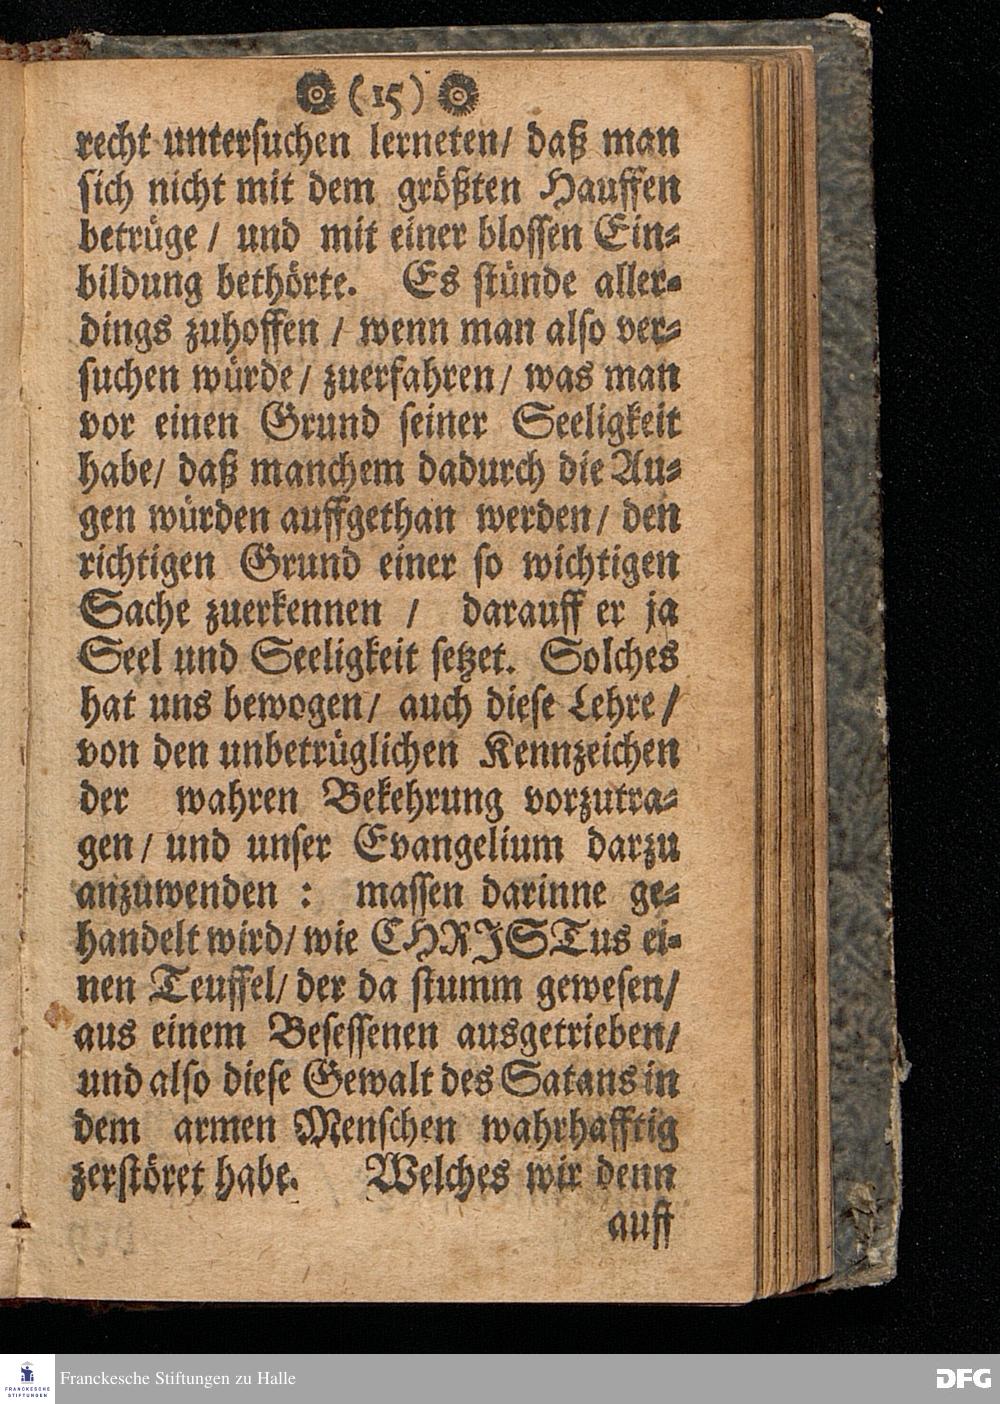 (15)
recht unterſuchen lerneten/ daß man
ſich nicht mit dem größten Hauffen
betrüge / und mit einer bloſſen Ein⸗
bildung bethörte. Es ſtünde aller⸗
dings zuhoffen / wenn man alſo ver⸗
ſuchen würde/ zuerfahren/ was man
vor einen Grund ſeiner Seeligkeit
habe/ daß manchem dadurch die Au⸗
gen würden auffgethan werden/ den
richtigen Grund einer ſo wichtigen
Sache zuerkennen / darauff er ja
Seel und Seeligkeit ſetzet. Solches
hat uns bewogen/ auch dieſe Lehre/
von den unbetrüglichen Kennzeichen
der wahren Bekehrung vorzutra⸗
gen/ und unſer Evangelium darzu
anzuwenden : maſſen darinne ge⸗
handelt wird/ wie CHRJSTus ei⸗
nen Teuffel/ der da ſtumm geweſen/
aus einem Beſeſſenen ausgetrieben/
und alſo dieſe Gewalt des Satans in
dem armen Menſchen wahrhafftig
zerſtöret habe. Welches wir denn
auff
FRANCKESCHE
STIFTUNGEN
Franckesche Stiftungen zu Halle
DFG